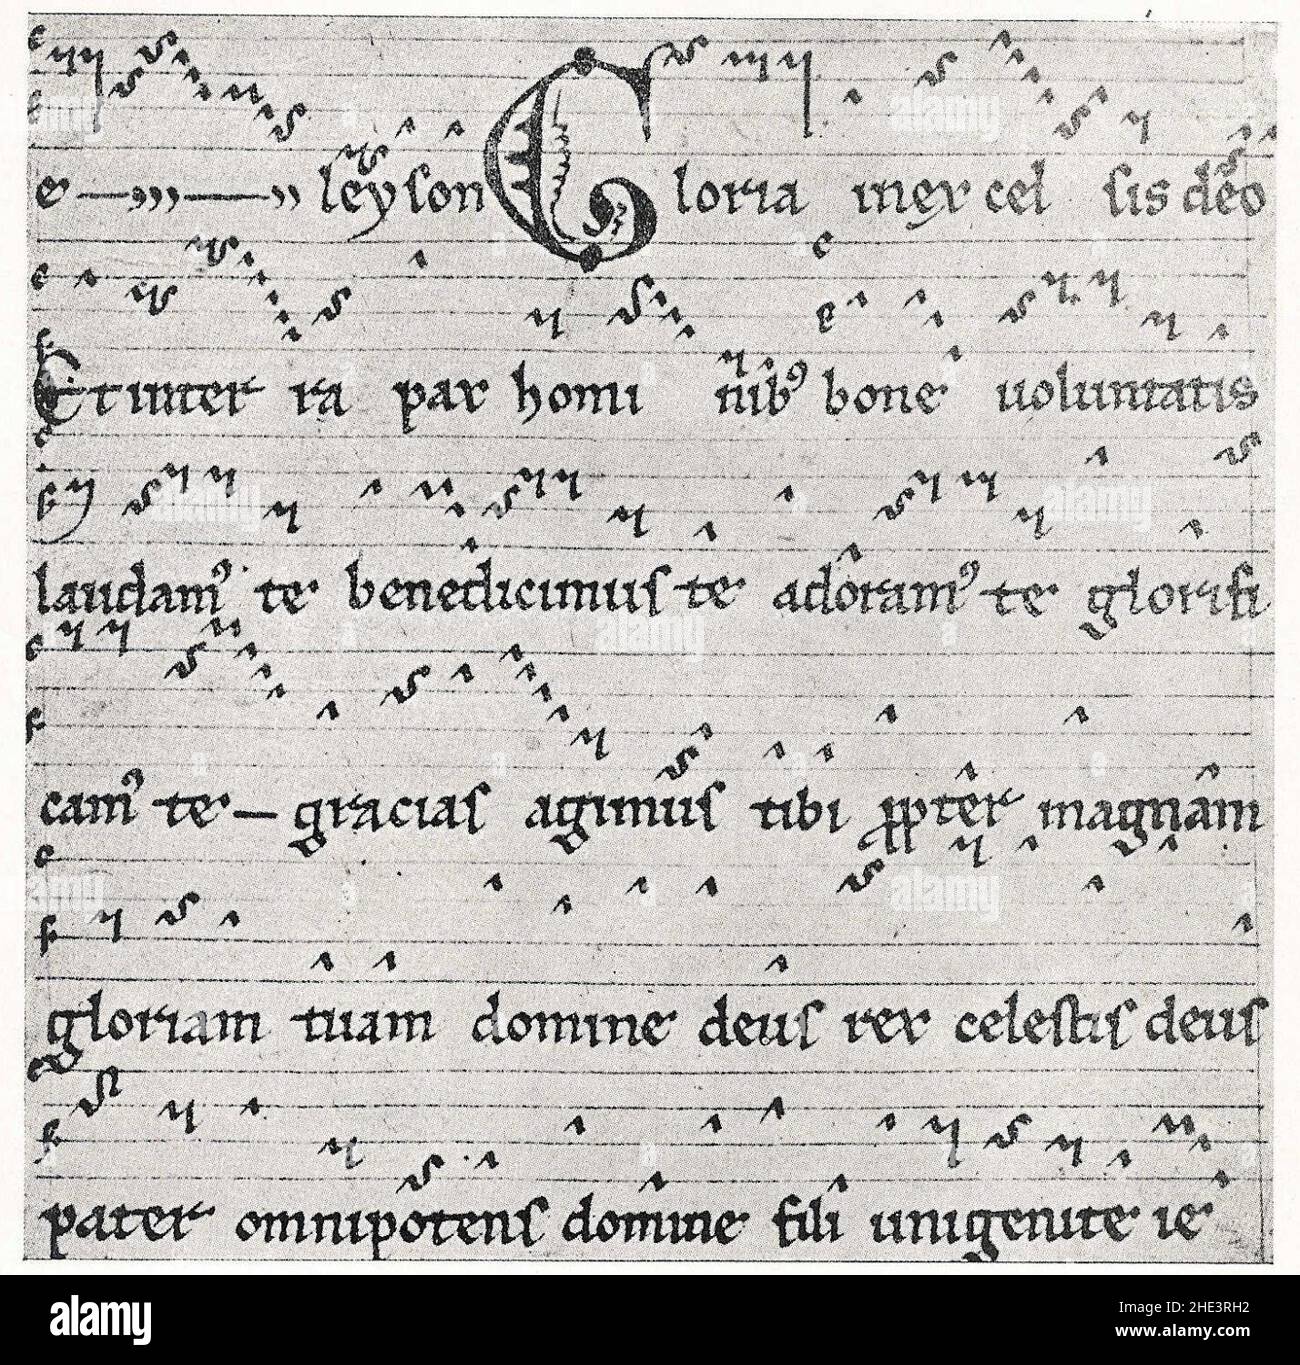 e — ,,, — ,, leyson Gloria inexcel sis deo
Et inter ra pax homi nib9 bone uoluntatis
laudam9 te benedicimus te adoram9 te glorifi
cam9 te — gracias agimus tibi propter magnam
gloriam tuam domine deus rex celestis deus
pater omnipotens domine fili unigenite ie
alamy
Image ID: 2HE3RH2
www.alamy.com